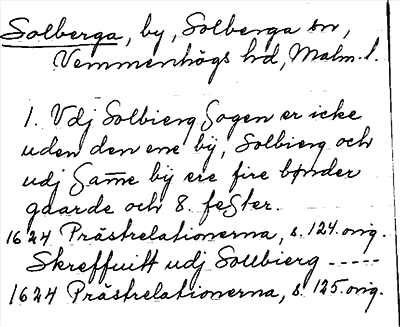 Solberga, by, Solberga sn,
Vemmenhögs hd, Malm. l.
1. Vdj Solbierg Sogen er icke
uden den ene bÿ, Solbierg och
udj Sam̅e bÿ ere fire bønder
gaarde och 8. fester.
1624 Prästrelationerna, s. 124. orig.
Skreffuitt udj Sollbierg -----
1624 Prästrelationerna, s. 125. orig.